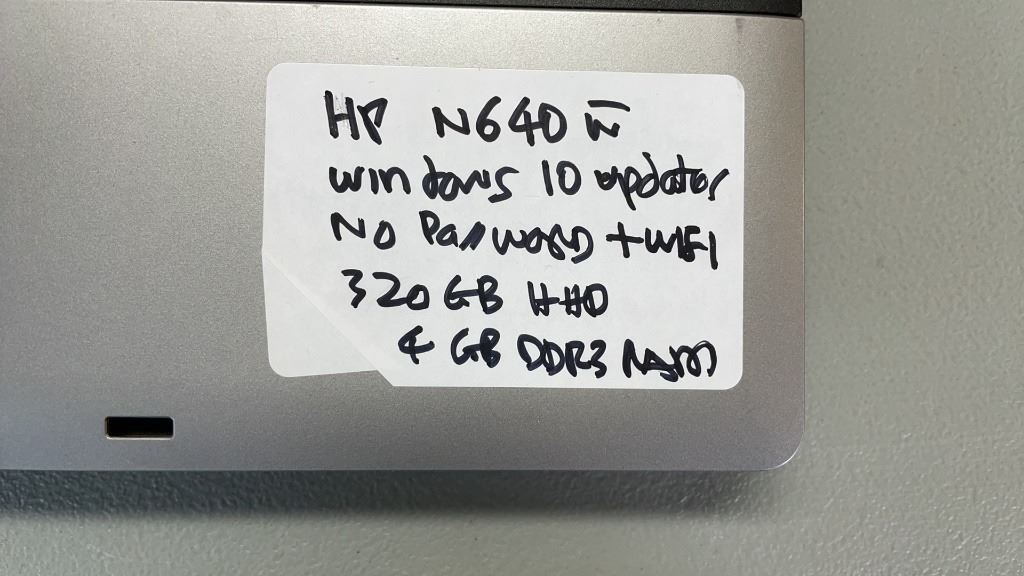 HP N640 w
windows 10 updates
No Password + WIFI
320 GB HHD
4 GB DDR3 RAM